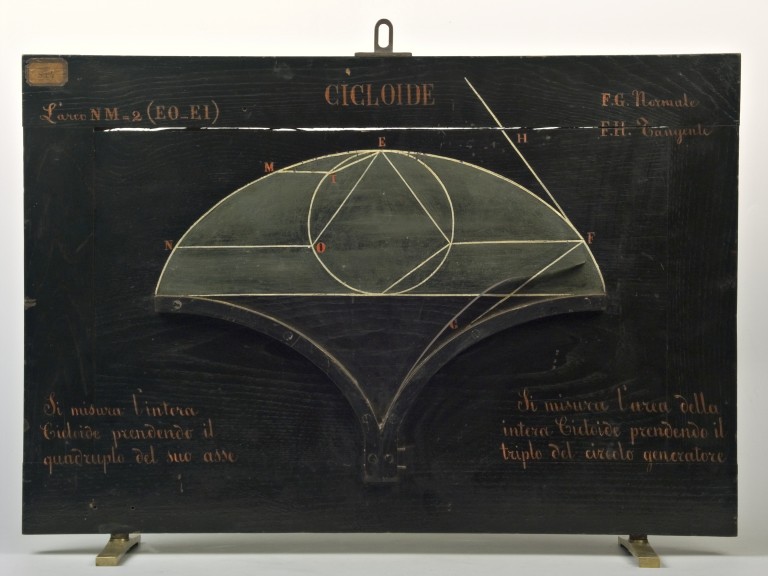 CICLOIDE
L'arco NM=2 (EO-EI)
F.G. Normale
F.H. Tangente
H
E
M
I
N
O
F
G
Si misura l'intera
Cicloide prendendo il
quadruplo del suo asse
Si misura l'area della
intera Cicloide prendendo il
triplo del circolo generatore